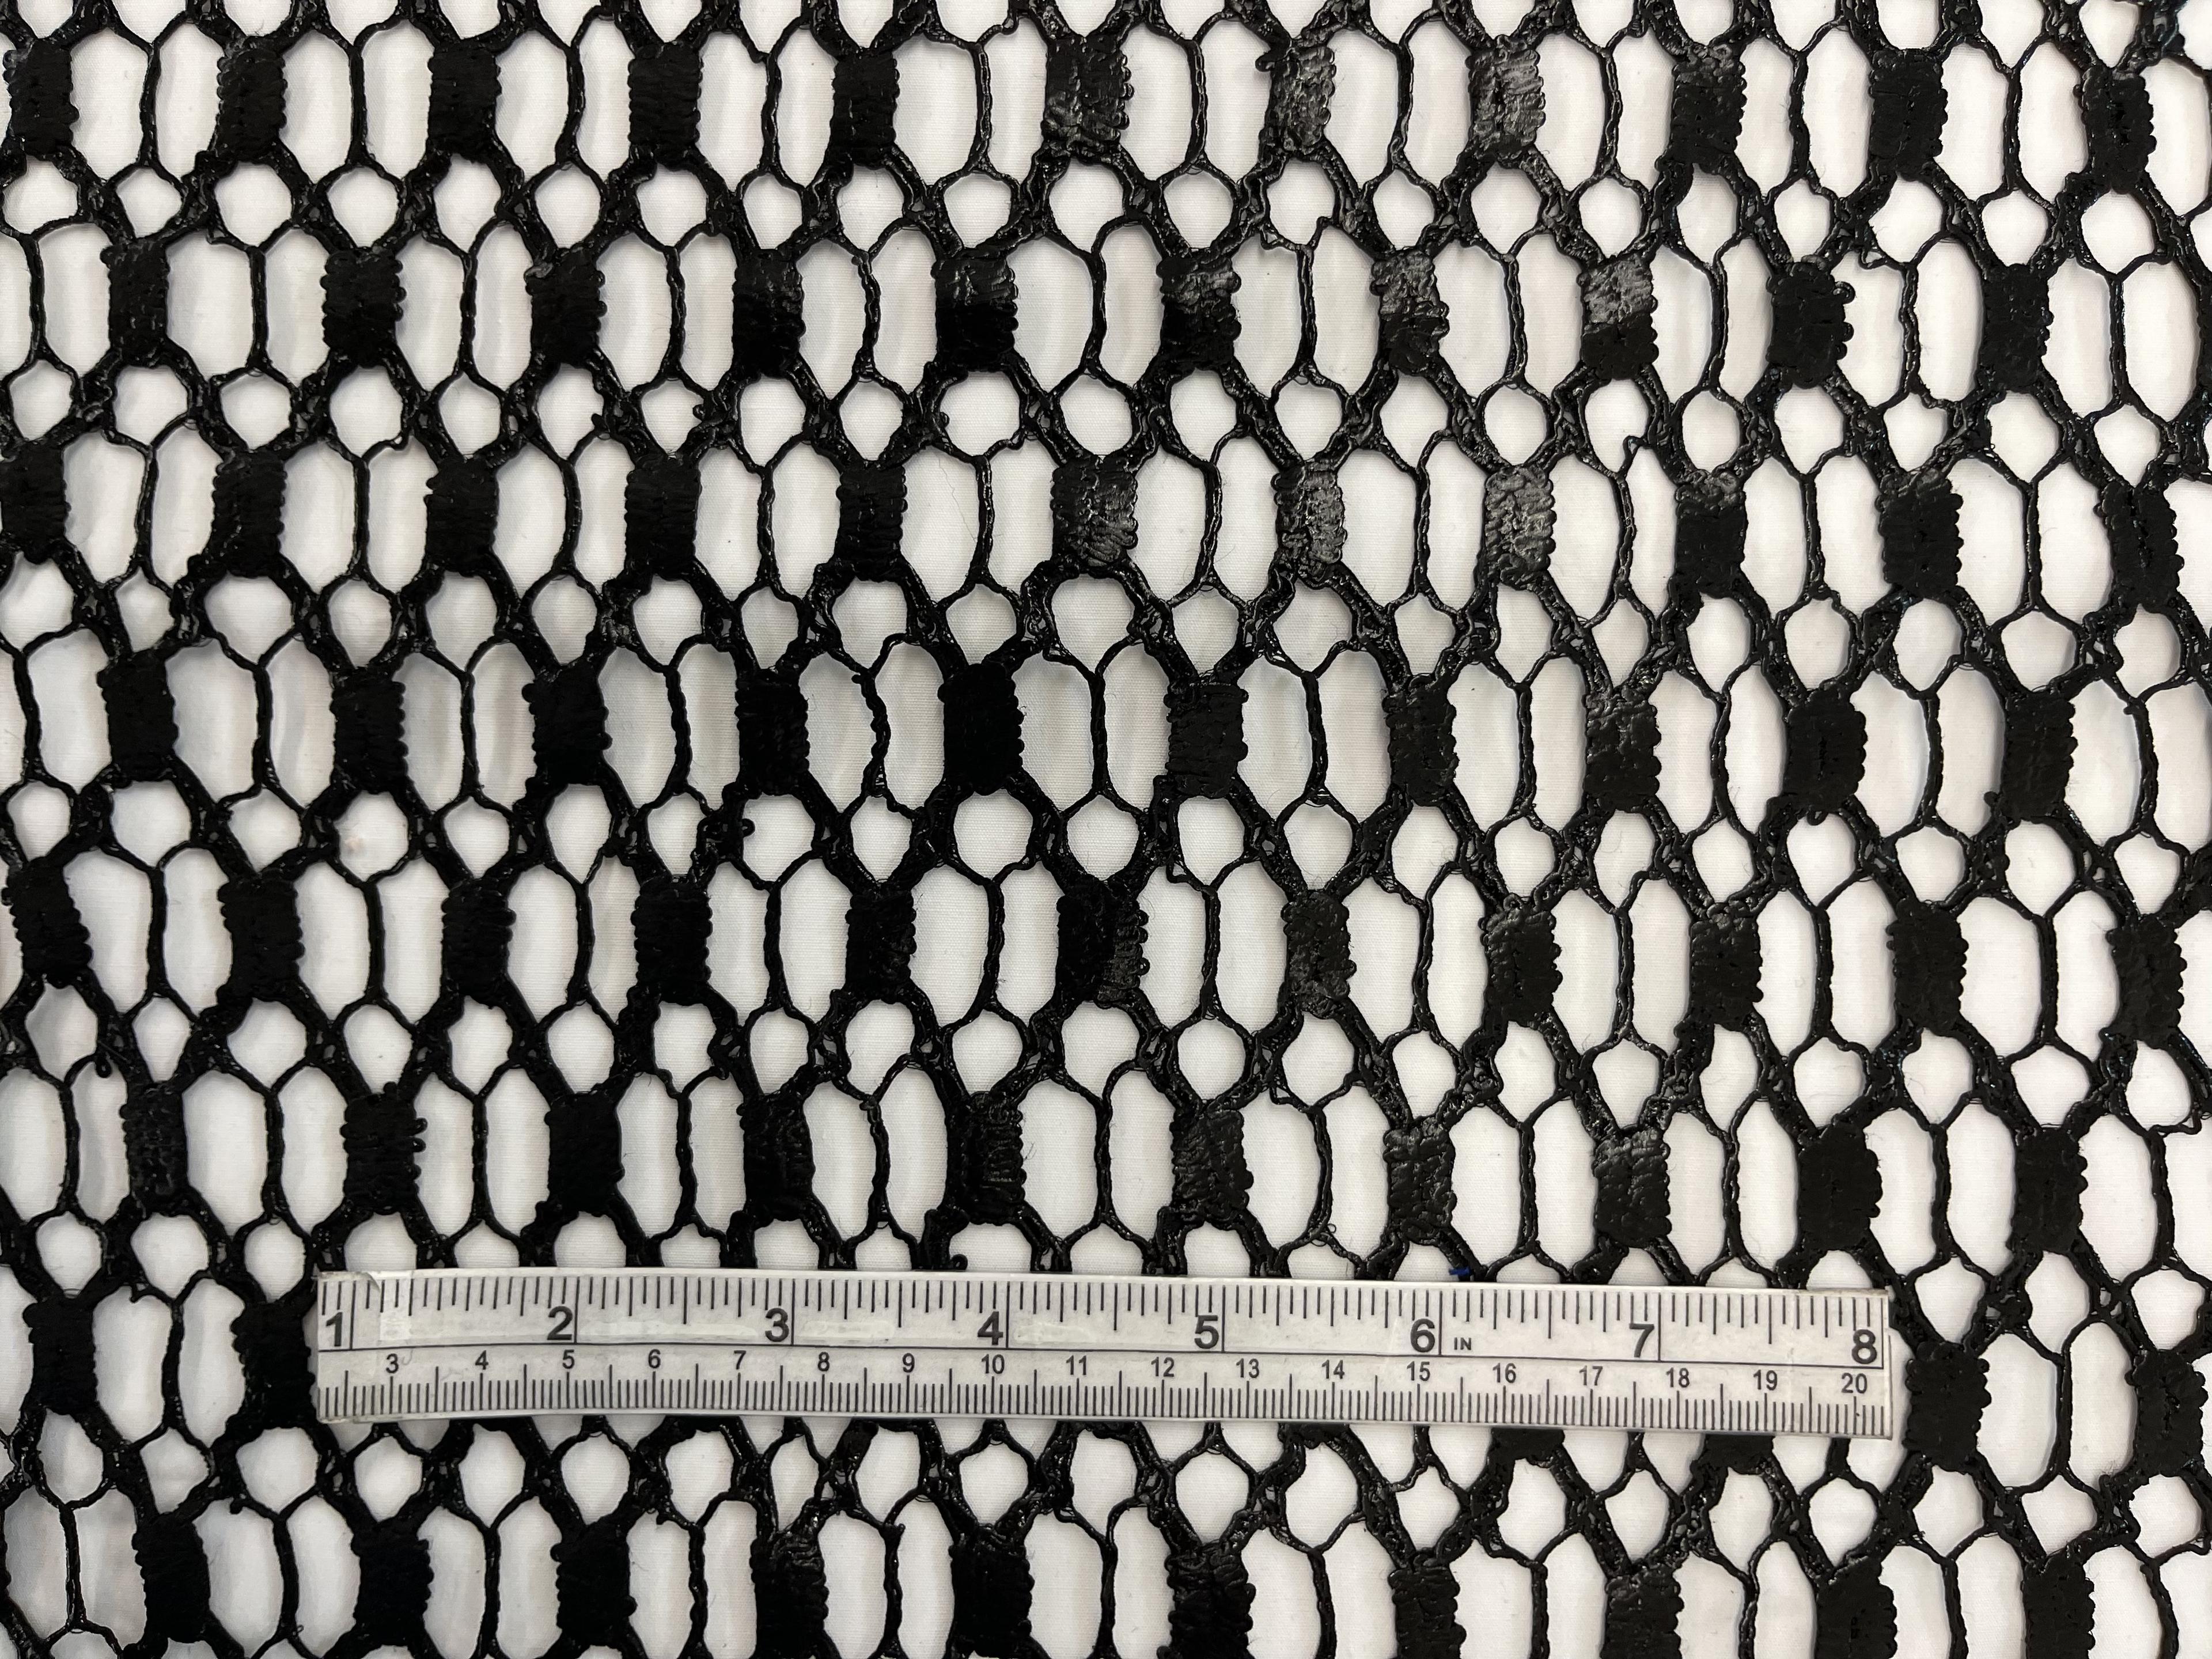 1 2 3 4 5 6 IN 7 8
3 4 5 6 7 8 9 10 11 12 13 14 15 16 17 18 19 20